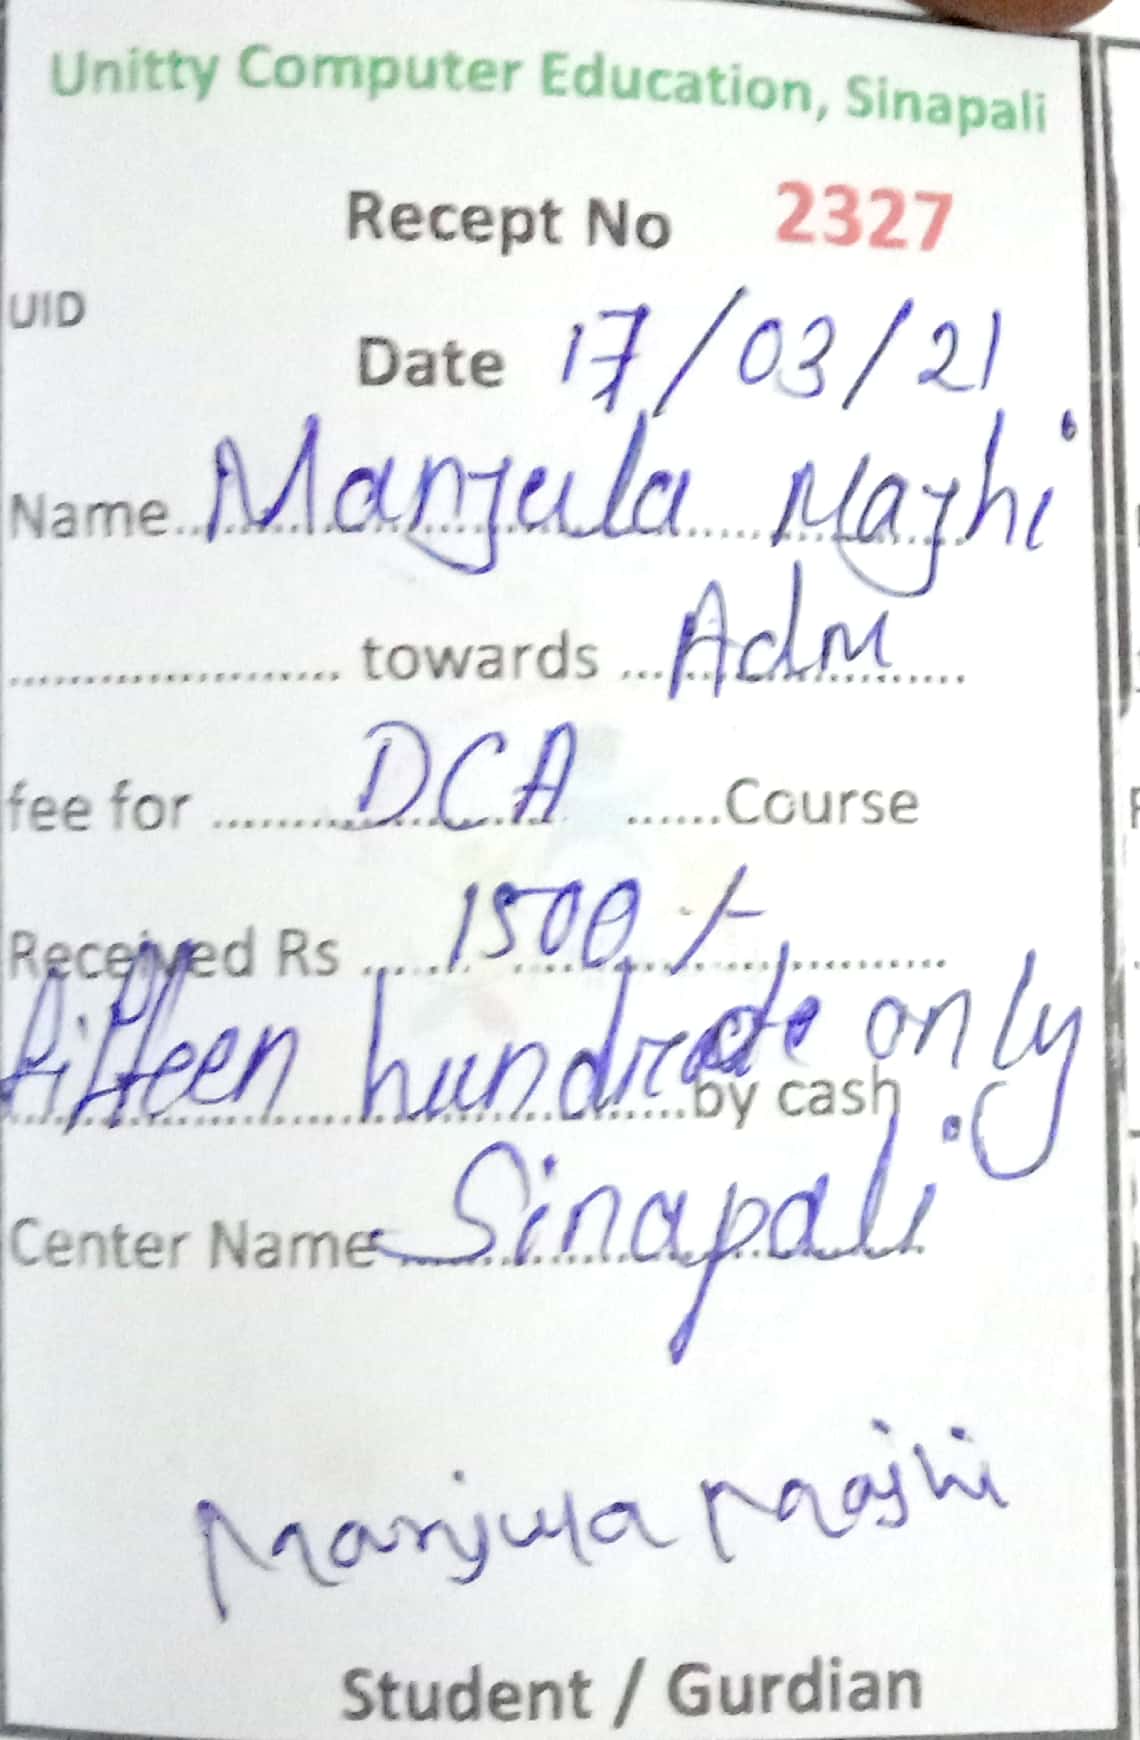 Unitty Computer Education, Sinapali
Recept No 2327
UID
Date 17/03/21
Name Manjula Majhi
towards Adm
fee for DCA Course
Received Rs 1500/-
fifteen hundrade only
by cash
Center Name Sinapali
Manjula Maajhi
Student / Gurdian